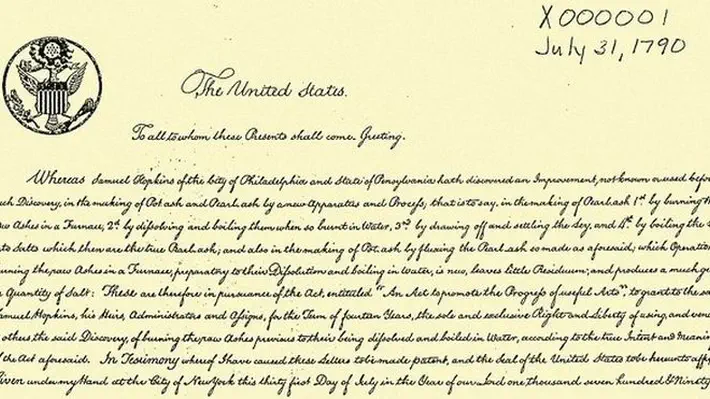 X000001
July 31, 1790
The United States.
To all to whom these Presents shall come. Greeting.
Whereas Samuel Hopkins of the City of Philadelphia and State of Pensylvania hath discovered an Improvement, not known or used before
such Discovery, in the making of Pot ash and Pearl ash by a new Apparatus and Process; that is to say, in the making of Pearl ash 1st by burning the
raw Ashes in a Furnace, 2d by dissolving and boiling them when so burnt in Water, 3rd by drawing off and settling the Ley, and 4th by boiling the
into Salts which then are the true Pearl ash; and also in the making of Pot ash by fluxing the Pearl ash so made as aforesaid; which Operation
burning the raw Ashes in a Furnace, preparatory to their Dissolution and boiling in Water, is new, leaves little Residuum; and produces a much
Quantity of Salt: These are therefore in pursuance of the Act, entituled "An Act to promote the Progress of useful Arts", to grant to the
Samuel Hopkins, his Heirs, Administrators and Assigns, for the Term of fourteen Years, the sole and exclusive Right and Liberty of using, and
others the said Discovery, of burning the raw Ashes previous to their being dissolved and boiled in Water, according to the true Intent and Meaning
of the Act aforesaid. In Testimony whereof I have caused these Letters to be made patent, and the Seal of the United States to be hereunto
Given under my Hand at the City of New York this thirty first Day of July in the Year of our Lord one thousand seven hundred & Ninety